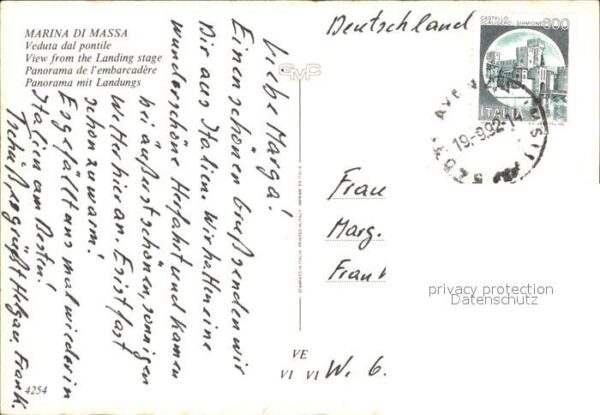 MARINA DI MASSA
Veduta dal pontile
View from the Landing stage
Panorama de l'embarcadère
Panorama mit Landungs
Liebe Marga!
Einen schönen Gruß senden wir
Dir aus Italien. Wir hatten eine
wunderschöne Herfahrt und kamen
bei äußerst schönen, sonnigen
Wetter hier an. Er ist fast
schon zu warm!
Es gefällt uns mal wieder in
Italien am Besten!
Tschüß, es grüßt Helga u. Frank.
4254
GMC
STAMPATO IN ITALIA - PRINTED IN ITALY - IMPRIMÉ EN ITALIE
Deutschland
CASTELLO
SCALIGERO - SIRMIONE
600
ITALIA
19.-9.92-14
Frau
Marg.
Frank
VE
VI VI
W. 6.
privacy protection
Datenschutz